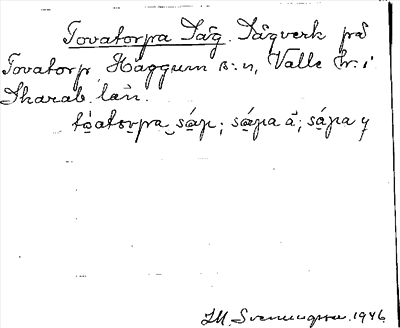 Tovatorpa Såg. Sågverk på
Tovatorp, Häggum s:n, Valle hr. i
Skarab. län.
tòatorpa sáp; sápa å; sápa y
S.M. Svenungsson 1946